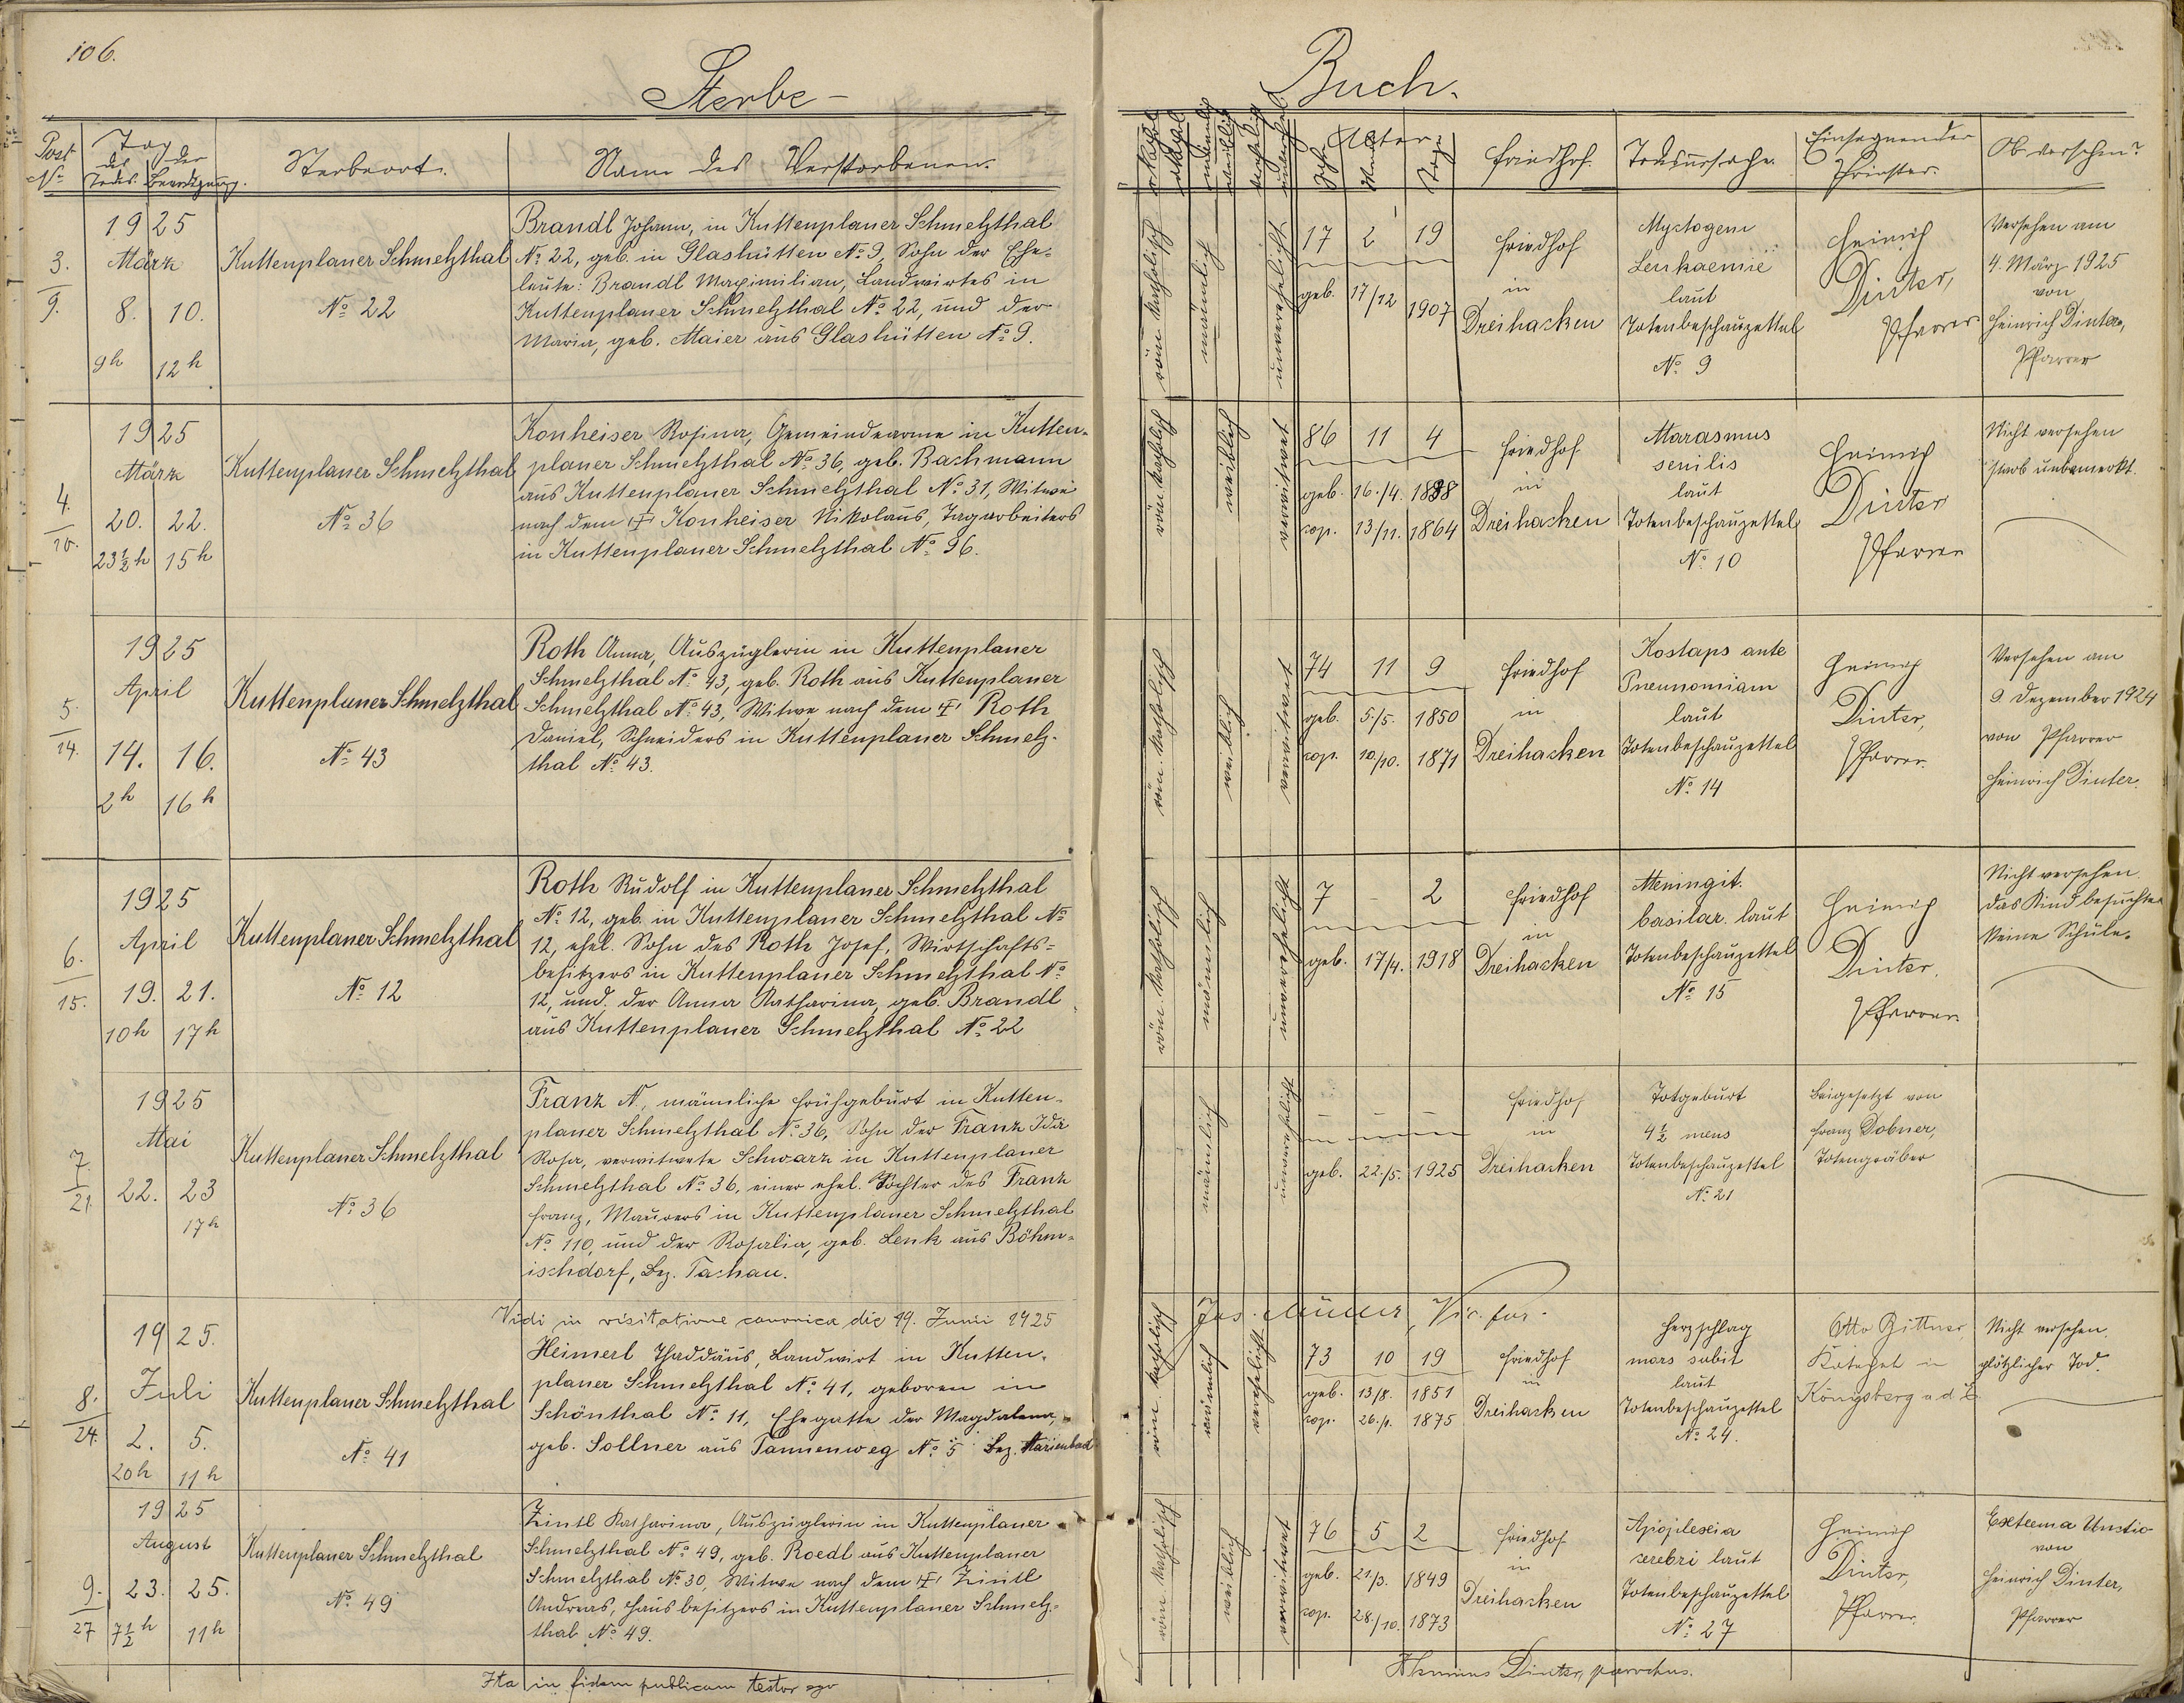 106.
Sterbe-
Buch.
Post
No
Tag
des
Todes.
der
Beerdigung.
Sterbeort.
Name des Verstorbenen.
Alter
Jahre
Tage
Friedhof.
Todesursache.
Einsegnender
Priester.
Ob versehen?
3.
9.
1925
März
8. 10.
9h 12h
Kuttenplaner Schmelzthal
No 22
Brandl Johann, in Kuttenplaner Schmelzthal
No 22, geb. in Glashütten No 9, Sohn der Ehe=
leute: Brandl Maximilian, Landwirtes in
Kuttenplaner Schmelzthal No 22, und der
Maria, geb. Maier aus Glashütten No 9.
röm. katholisch
männlich
unverehelicht
17 2 19
geb. 17/12 1907
Friedhof
in
Dreihacken
Myctogene
Leukaemie
laut
Totenbeschauzettel
No 9
Heinrich
Dinter,
Pfarrer
Versehen am
4. März 1925
von
Heinrich Dinter,
Pfarrer
4.
10.
1925
März
20. 22.
23½h 15h
Kuttenplaner Schmelzthal
No 36
Konheiser Rosina, Gemeindearme in Kutten-
planer Schmelzthal No 36, geb. Bachmann
aus Kuttenplaner Schmelzthal No 31, Witwe
nach dem † Konheiser Nikolaus, Tagarbeiters
in Kuttenplaner Schmelzthal No 36.
röm. katholisch
weiblich
verwitwet
86 11 4
geb. 16./4. 1838
cop. 13/11. 1864
Friedhof
in
Dreihacken
Marasmus
senilis
laut
Totenbeschauzettel
No 10
Heinrich
Dinter
Pfarrer
Nicht versehen
starb unbemerkt.
5.
14.
1925
April
14. 16.
2h 16h
Kuttenplaner Schmelzthal
No 43
Roth Anna, Auszüglerin in Kuttenplaner
Schmelzthal No 43, geb. Roth aus Kuttenplaner
Schmelzthal No 43, Witwe nach dem † Roth
Daniel, Schneiders in Kuttenplaner Schmelz-
thal No 43.
röm. katholisch
weiblich
verwitwet
74 11 9
geb. 5./5. 1850
cop. 10/10. 1871
Friedhof
in
Dreihacken
Kostaps ante
Pneunomiam
laut
Totenbeschauzettel
No 14
Heinrich
Dinter,
Pfarrer.
Versehen am
9. Dezember 1924
von Pfarrer
Heinrich Dinter.
6.
15.
1925
April
19. 21.
10h 17h
Kuttenplaner Schmelzthal
No 12
Roth Rudolf in Kuttenplaner Schmelzthal
No 12, geb. in Kuttenplaner Schmelzthal No
12, ehel. Sohn des Roth Josef, Wirtschafts=
besitzers in Kuttenplaner Schmelzthal No
12, und der Anna Katharina, geb. Brandl
aus Kuttenplaner Schmelzthal No 22
röm. katholisch
männlich
unverehelicht
7 - 2
geb. 17/4. 1918
Friedhof
in
Dreihacken
Meningit.
basilar. laut
Totenbeschauzettel
No 15
Heinrich
Dinter,
Pfarrer
Nicht versehen.
das Kind besuchte
keine Schule.
7.
21.
1925
Mai
22. 23
17h
Kuttenplaner Schmelzthal
No 36
Franz N., männliche Frühgeburt in Kutten-
planer Schmelzthal No 36, Sohn der Franz Ida
Rosa, verwitwete Schwarz in Kuttenplaner
Schmelzthal No 36, einer ehel. Tochter des Franz
Franz, Maurers in Kuttenplaner Schmelzthal
No 110, und der Rosalia, geb. Lenk aus Böhm-
ischdorf, Bez. Tachau.
männlich
unverehelicht
geb. 22./5. 1925
Friedhof
in
Dreihacken
Totgeburt
4½ mens
Totenbeschauzettel
No 21
Beigesetzt von
Franz Dobner,
Totengräber
Vidi in visitatione canonica die 19. Junii 1925
Jos. Müller, Vic. for.
8.
24.
1925.
Juli
2. 5.
20h 11h
Kuttenplaner Schmelzthal
No 41
Heimerl Thaddäus, Landwirt in Kutten-
planer Schmelzthal No 41, geboren in
Schönthal No 11, Ehegatte der Magdalena,
geb. Sollner aus Tannenweg No 5 Bez. Marienbad
röm. katholisch
männlich
verehelicht
73 10 19
geb. 13/8. 1851
cop. 26./1. 1875
Friedhof
in
Dreihacken
Herzschlag
mors subit
laut
Totenbeschauzettel
No 24.
Otto Bittner,
Katechet in
Königsberg a. d. E.
Nicht versehen.
plötzlicher Tod.
9.
27
1925
August
23. 25.
7½h 11h
Kuttenplaner Schmelzthal
No 49
Zintl Katharina, Auszüglerin in Kuttenplaner
Schmelzthal No 49, geb. Roedl aus Kuttenplaner
Schmelzthal No 30, Witwe nach dem † Zintl
Andreas, Hausbesitzers in Kuttenplaner Schmelz=
thal No 49.
röm. katholisch
weiblich
verwitwet
76 5 2
geb. 21/3. 1849
cop. 28./10. 1873
Friedhof
in
Dreihacken
Apoplexia
cerebri laut
Totenbeschauzettel
No 27
Heinrich
Dinter,
Pfarrer
Extrema Unctio
von
Heinrich Dinter,
Pfarrer
Ita in fidem publicam testor ego
Dinter, parochus.